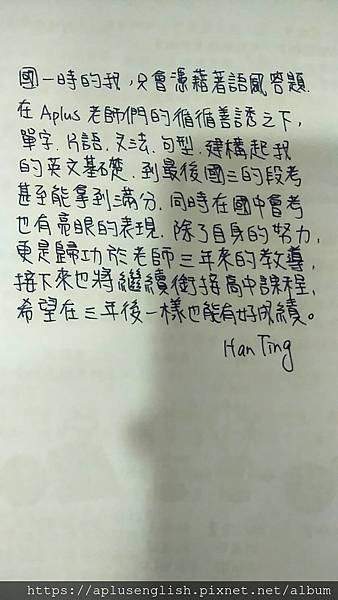 國一時的我,只會憑藉著語感答題.
在 Aplus 老師們的循循善誘之下,
單字.片語.文法.句型.建構起我
的英文基礎.到最後國三的段考
甚至能拿到滿分.同時在國中會考
也有亮眼的表現.除了自身的努力,
更是歸功於老師三年來的教導,
接下來也將繼續銜接高中課程,
希望在三年後一樣也能有好成績。
Han Ting
https://aplusenglish.pixnet.net/album